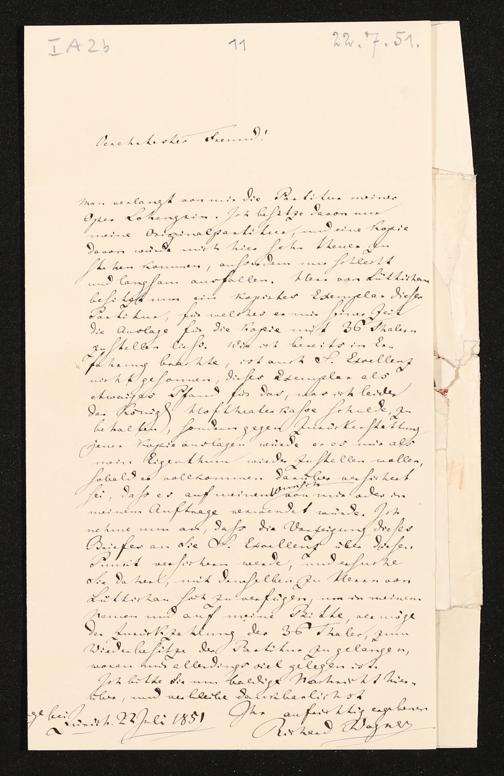 I A 2b
11
22.7.51.
Verehrtester Freund!
Man verlangt von mir die Partitur meiner
Oper Lohengrin. Ich besitze davon nur
meine Originalpartitur, und eine Kopie
davon würde mich hier sehr theuer zu
stehen kommen, außerdem nur schlecht
und langsam ausfallen. Herr von Lüttichau
besitzt nun ein kopirtes Exemplar dieser
Partitur, für welches er mir seiner Zeit
die Auslage für die Kopie mit 36 Thalern
zustellen ließ. Wie ich bereits in Er-
fahrung brachte, ist auch S. Excellenz
nicht gesonnen, dieses Exemplar als
etwaiges Pfand für das, was ich leider
der Königl. Hoftheaterkasse schulde, zu
behalten, sondern gegen Zurückerstattung
jener Kopieauslagen würde er es mir als
mein Eigenthum wieder zustellen wollen,
sobald er vollkommen darüber versichert
sei, daß es auf meinen Wunsch von mir oder in
meinem Auftrage verwendet würde. Ich
nehme nun an, daß die Vorzeigung dieses
Briefes an Sie S. Excellenz über diesen
Punkt versichern werde, und ersuche
Sie daher, mit demselben zu Herrn von
Lüttichau sich zu verfügen, um in meinem
Namen und auf meine Bitte, vermöge
der Zurückzahlung der 36 Thaler, zum
Wiederbesitze der Partitur zu gelangen,
woran mir allerdings viel gelegen ist.
Ich bitte Sie um baldige Nachricht hier-
über, und verbleibe dankbarlichst
Ihr aufrichtig ergebener
Zürich 22 Juli 1851
Richard Wagner